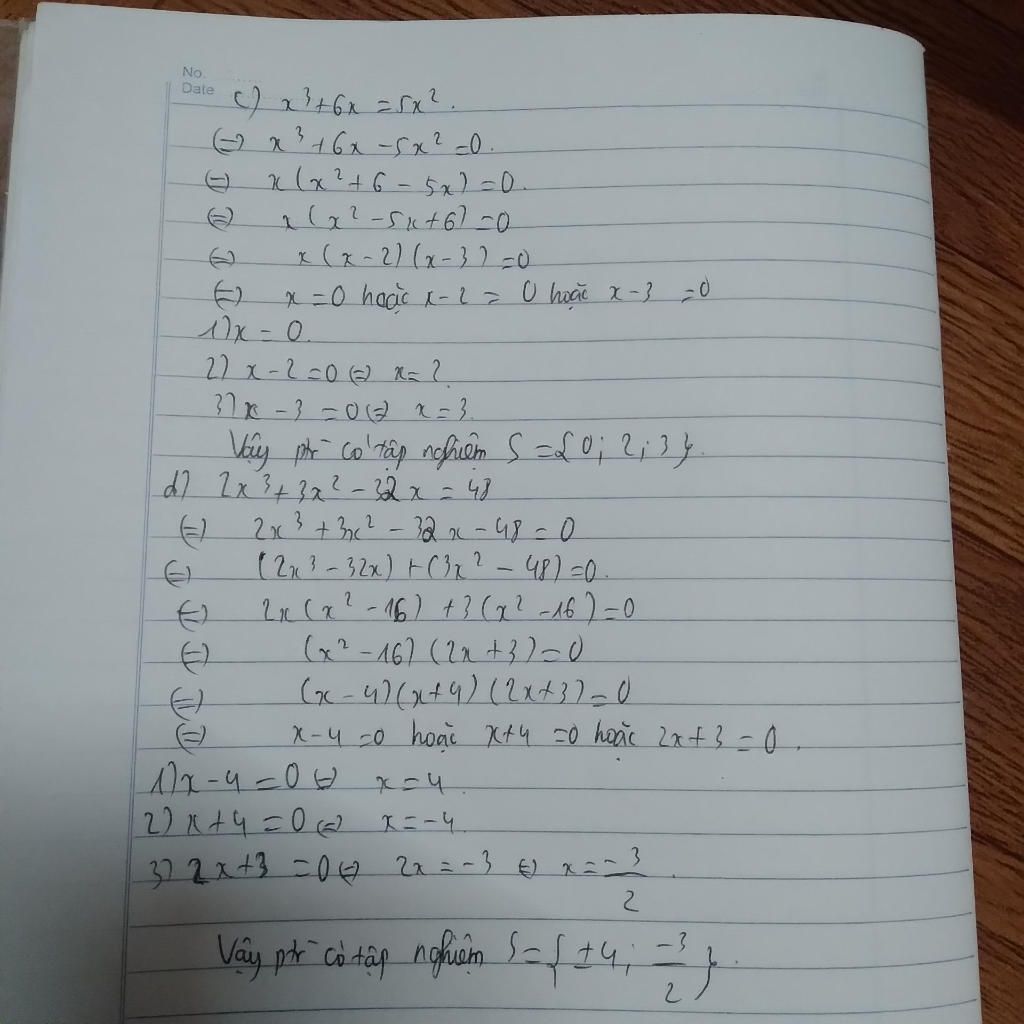 No.
Date
c) x³+6x = 5x².
⇔ x³+6x-5x² = 0.
⇔ x(x²+6-5x) = 0.
⇔ x(x²-5x+6) = 0
⇔ x(x-2)(x-3) = 0
⇔ x = 0 hoặc x-2 = 0 hoặc x-3 = 0
1) x = 0.
2) x-2 = 0 ⇔ x = 2.
3) x-3 = 0 ⇔ x = 3.
Vậy ptr có tập nghiệm S = {0; 2; 3}.
d) 2x³+3x²-32x = 48
⇔ 2x³+3x²-32x-48 = 0
⇔ (2x³-32x)+(3x²-48) = 0.
⇔ 2x(x²-16)+3(x²-16) = 0
⇔ (x²-16)(2x+3) = 0
⇔ (x-4)(x+4)(2x+3) = 0
⇔ x-4 = 0 hoặc x+4 = 0 hoặc 2x+3 = 0.
1) x-4 = 0 ⇔ x = 4.
2) x+4 = 0 ⇔ x = -4.
3) 2x+3 = 0 ⇔ 2x = -3 ⇔ x = -3/2.
Vậy ptr có tập nghiệm S = {±4; -3/2}.